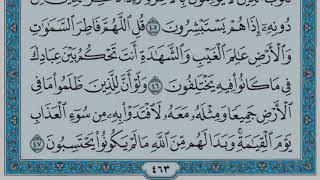 دُونِهِۦٓ إِذَا هُمْ يَسْتَبْشِرُونَ ﴿٤٥﴾ قُلِ ٱللَّهُمَّ فَاطِرَ ٱلسَّمَٰوَٰتِ
وَٱلْأَرْضِ عَٰلِمَ ٱلْغَيْبِ وَٱلشَّهَٰدَةِ أَنتَ تَحْكُمُ بَيْنَ عِبَادِكَ
فِي مَا كَانُوا۟ فِيهِ يَخْتَلِفُونَ ﴿٤٦﴾ وَلَوْ أَنَّ لِلَّذِينَ ظَلَمُوا۟ مَا فِي
ٱلْأَرْضِ جَمِيعًا وَمِثْلَهُۥ مَعَهُۥ لَٱفْتَدَوْا۟ بِهِۦ مِن سُوٓءِ ٱلْعَذَابِ
يَوْمَ ٱلْقِيَٰمَةِ ۚ وَبَدَا لَهُم مِّنَ ٱللَّهِ مَا لَمْ يَكُونُوا۟ يَحْتَسِبُونَ ﴿٤٧﴾
٤٦٣